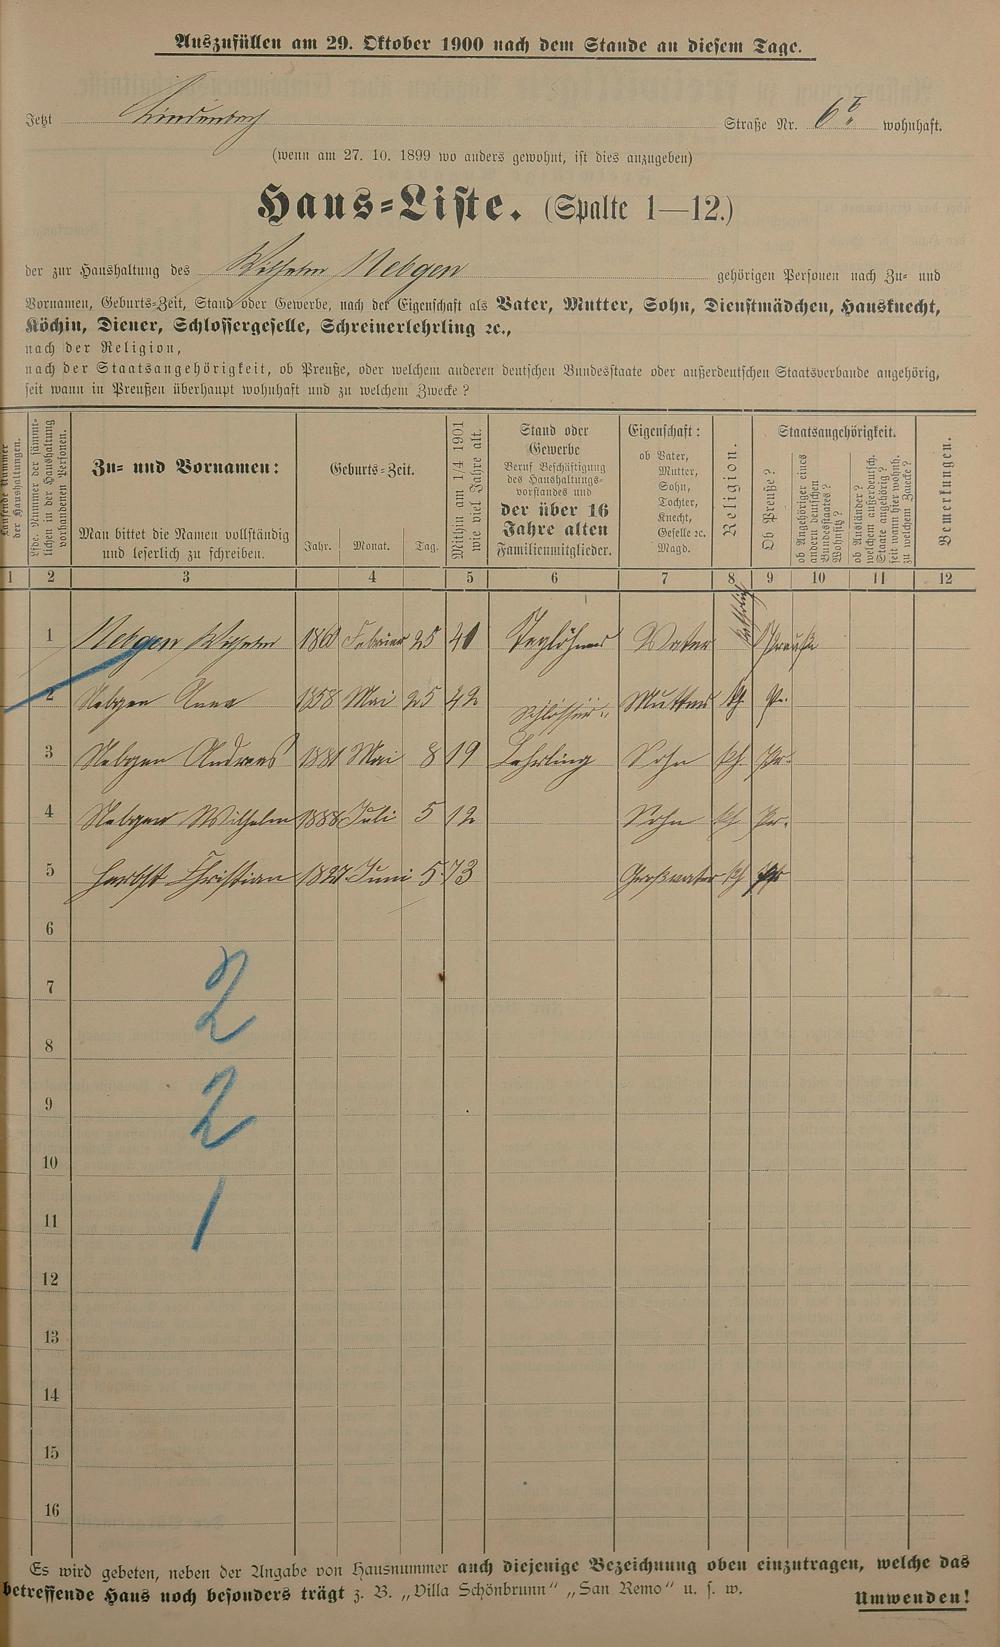 Auszufüllen am 29. Oktober 1900 nach dem Stande an diesem Tage.
Jetzt Lindenbach Straße Nr. 6 b wohnhaft.
(wenn am 27. 10. 1899 wo anders gewohnt, ist dies anzugeben)
Haus-Liste. (Spalte 1—12.)
der zur Haushaltung des Wilhelm Nebgen gehörigen Personen nach Zu- und
Vornamen, Geburts-Zeit, Stand oder Gewerbe, nach der Eigenschaft als Vater, Mutter, Sohn, Dienstmädchen, Hausknecht,
Köchin, Diener, Schlossergeselle, Schreinerlehrling ꝛc.,
nach der Religion,
nach der Staatsangehörigkeit, ob Preuße, oder welchem anderen deutschen Bundesstaate oder außerdeutschen Staatsverbande angehörig,
seit wann in Preußen überhaupt wohnhaft und zu welchem Zwecke?
Laufende Nummer
der Haushaltungen.
Lfde. Nummer der sämmt-
lichen in der Haushaltung
vorhandenen Personen.
Zu- und Vornamen:
Man bittet die Namen vollständig
und leserlich zu schreiben.
Geburts-Zeit.
Jahr. Monat. Tag.
Mithin am 1/4 1901
wie viel Jahre alt.
Stand oder
Gewerbe
Beruf Beschäftigung
des Haushaltungs-
vorstandes und
der über 16
Jahre alten
Familienmitglieder.
Eigenschaft:
ob Vater,
Mutter,
Sohn,
Tochter,
Knecht,
Geselle ꝛc.
Magd.
Religion.
Staatsangehörigkeit.
Ob Preuße?
ob Angehöriger eines
andern deutschen
Bundesstaates?
Wohnsitz?
ob Ausländer?
welchem außerdeutsch.
Staate angehörig?
seit wann hier wohnh.
zu welchem Zwecke?
Bemerkungen.
1 2 3 4 5 6 7 8 9 10 11 12
1 Nebgen Wilhelm 1860 Februar 25 40 Taglöhner Vater katholisch Preuße
2 Nebgen Anna 1858 Mai 25 42 Mutter kth Pr.
3 Nebgen Andreas 1881 Mai 8 19 Schlosser-Lehrling Sohn kth. Pr.
4 Nebgen Wilhelm 1888 Juli 5 12 Sohn kth Pr.
5 Herbst Christian 1827 Juni 5 73 Großvater kth Pr
6
7
8
9
10
11
12
13
14
15
16
2
2
1
Es wird gebeten, neben der Angabe von Hausnummer auch diejenige Bezeichnung oben einzutragen, welche das
betreffende Haus noch besonders trägt z. B. „Villa Schönbrunn“ „San Remo“ u. s. w.
Umwenden!